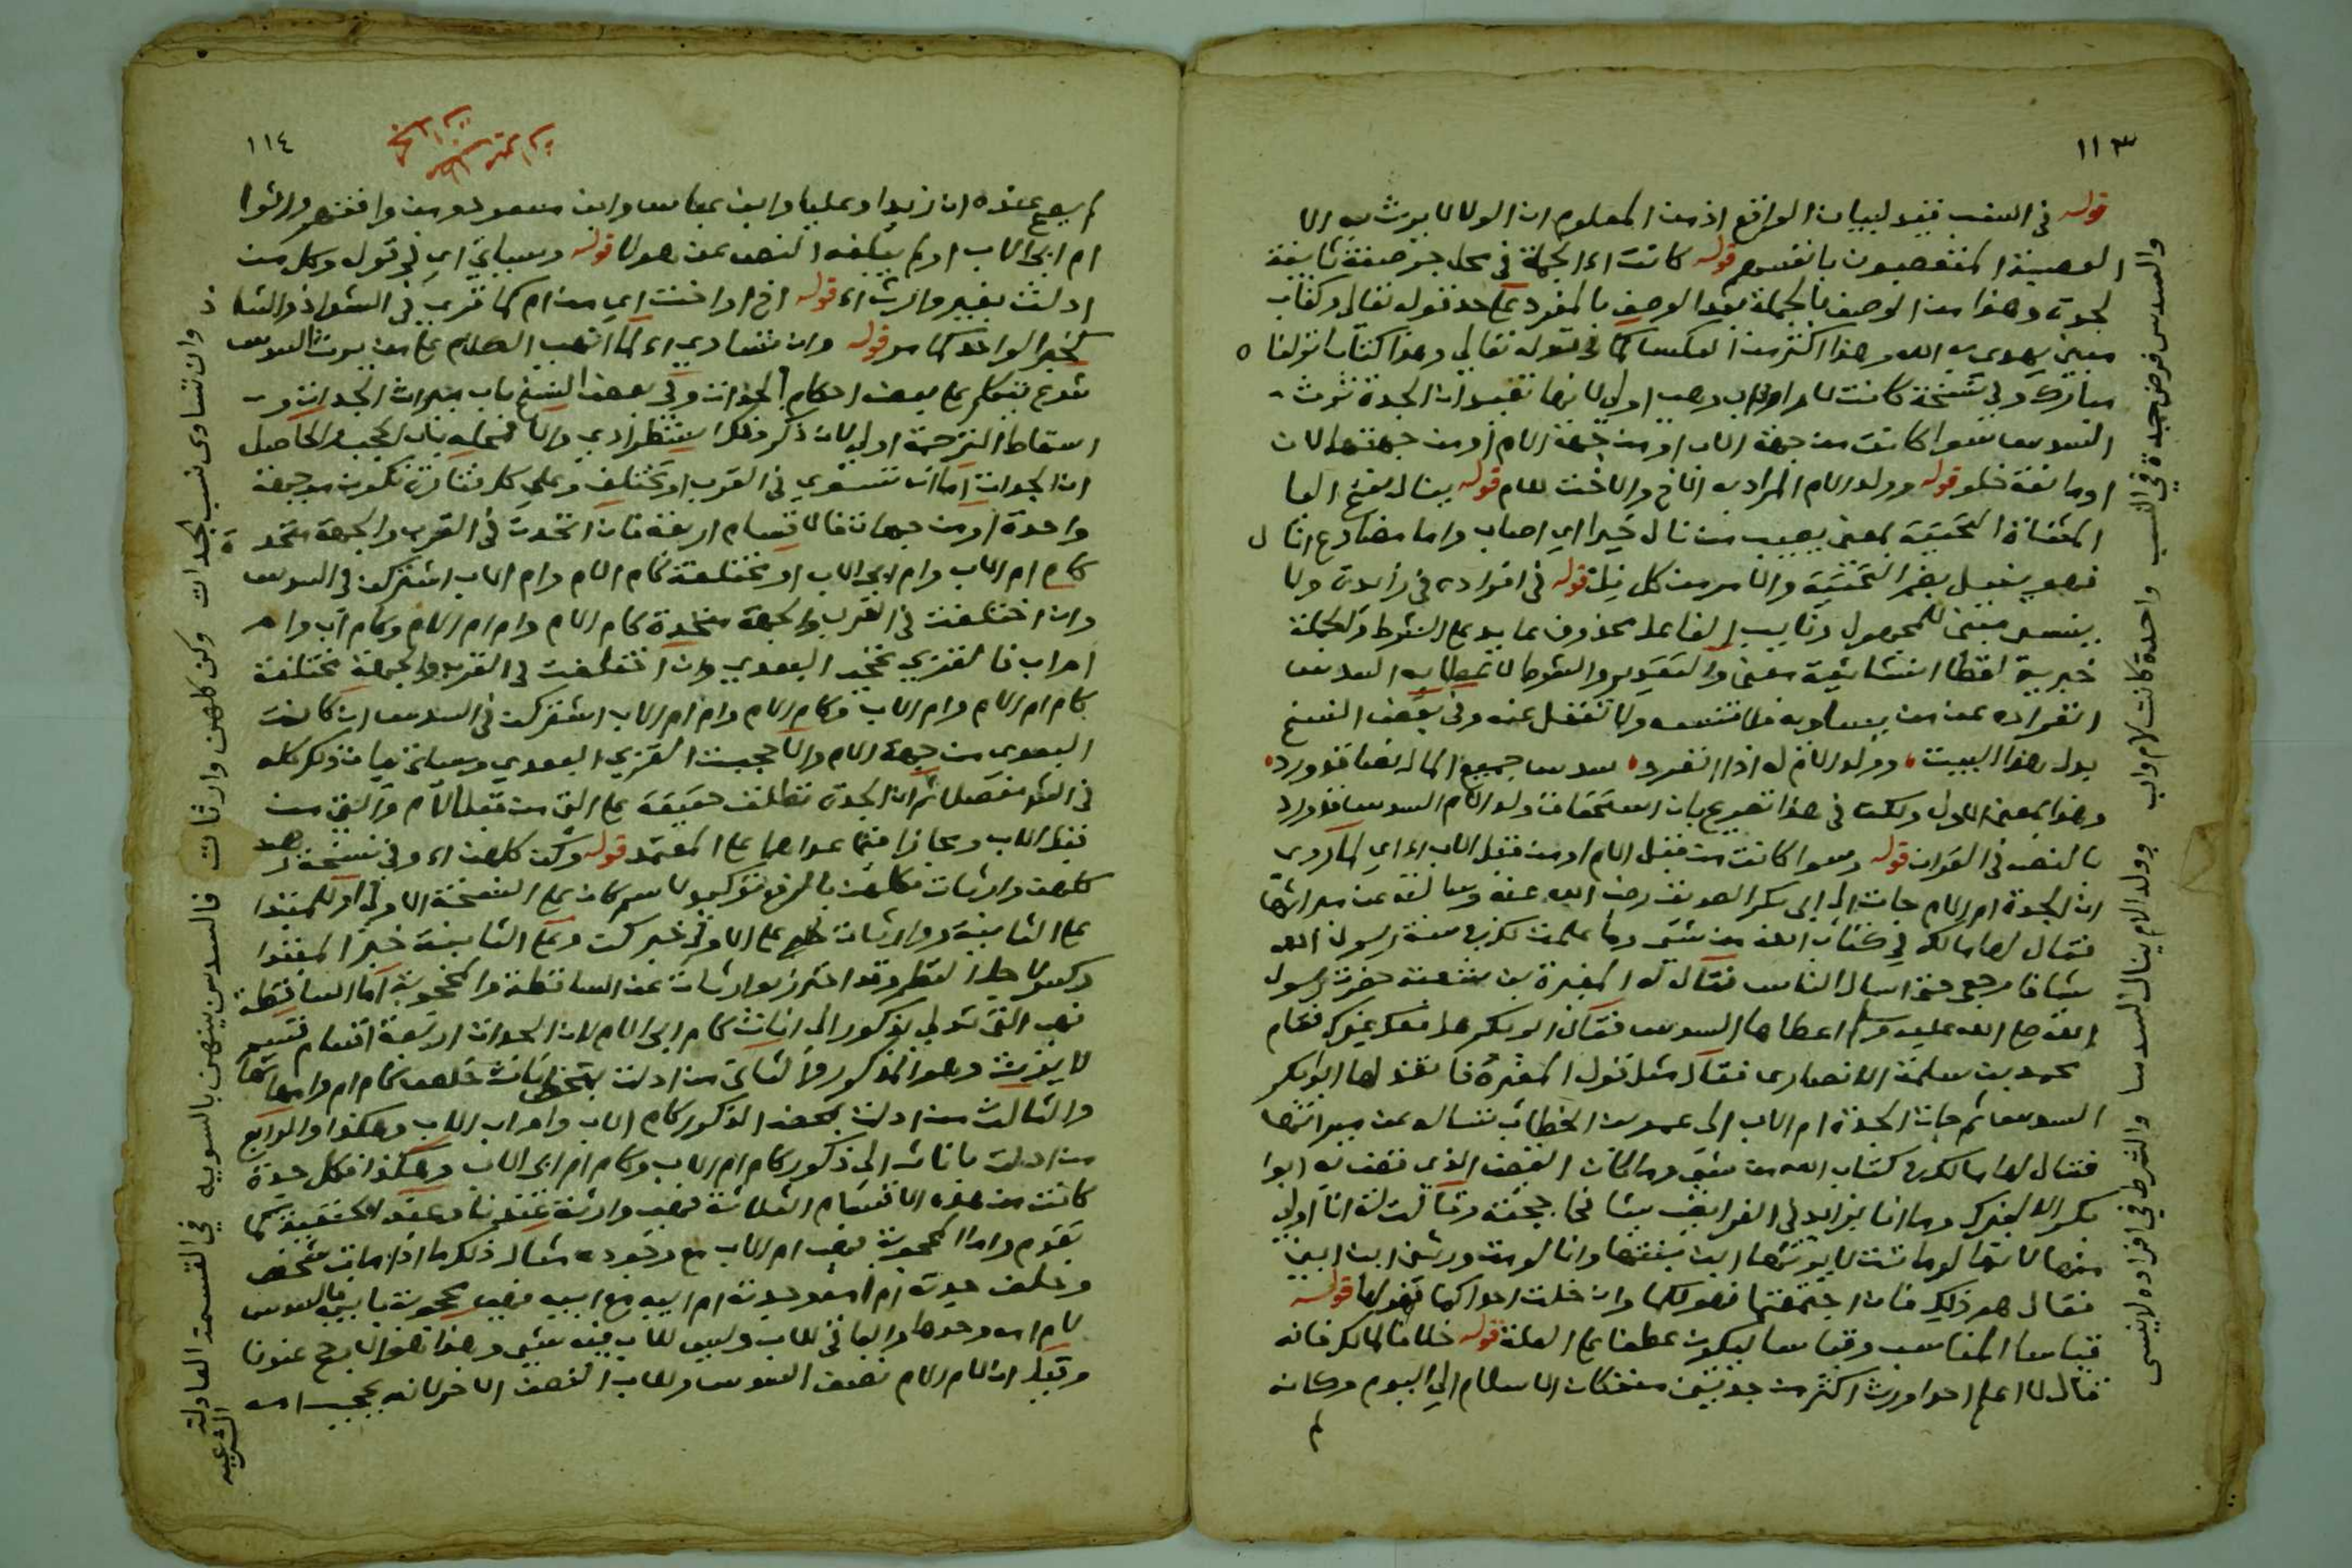 ١١٣
قوله في النسب قيد لبيان الواقع اذ من المعلوم ان الولا لا يورث به الا
العصبة المتعصبون بانفسهم قوله كانت اه الجملة في محل جر صفة ثانية
لجدة وهذا من الوصف بالجملة بعد الوصف بالمفرد على حد قوله تعالى وكتاب
مبين يهدي به الله وهذا اكثر من العكس كما في قوله تعالى وهذا كتاب انزلناه
مبارك وفي نسخة كانت لام او اب وهي اولى لانها تفيد ان الجدة ترث
السدس سوا كانت من جهة الاب او من جهة الام او من جهتهما لان
او مانعة خلو قوله وولد الام المراد به الاخ والاخت للام قوله ينال بفتح اليا
المثناة التحتية بمعنى يصيب من نال خيرا اي اصاب واما مضارع انال
فهو ينيل بضم التحتية والامر من كل نل قوله في افراده في زايدة ولا
ينسى مبني للمجهول ونايب الفاعل محذوف عايد على الشرط والجملة
خبرية لفظا انشائية معنى والتقدير والشرط لاعطايه السدس
انفراده عمن يساويه فلا تنسه ولا تغفل عنه وفي بعض النسخ
بدل هذا البيت وولد الام له اذا انفرد سدس جميع المال نصا قد ورد
وهذا بمعنى الاول ولكن في هذا تصريح بان استحقاق ولد الام السدس قد ورد
بالنص في القران قوله وسوا كانت من قبل الام او من قبل الاب اه اي لما روي
ان الجدة ام الام جات الى ابي بكر الصديق رضي الله عنه وسالته عن ميراثها
فقال لها مالك في كتاب الله من شي وما علمت لك في سنة رسول الله
شيا فارجعي حتى اسال الناس فقال له المغيرة بن شعبة حضرت رسول
الله صلى الله عليه وسلم اعطاها السدس فقال ابو بكر هل معك غيرك فقام
محمد بن سلمة الانصاري فقال مثل قول المغيرة فانفذ لها ابو بكر
السدس ثم جات الجدة ام الاب الى عمر بن الخطاب تساله عن ميراثها
فقال لها مالك في كتاب الله من شي وما كان القضا الذي قضى به ابو
بكر الا لغيرك وما انا بزايد في الفرايض شيا فحاججته وقالت له انا اولى
منها لانها لو ماتت لا يرثها ابن بنتها وانا لو مت ورثني ابن ابني
فقال هو ذلك فان اجتمعتما فهو لكما وان خلت احداكما فهو لها قوله
قياسا المناسب وقياسا ليكون عطفا على العلة قوله خلافا لمالك فانه
قال لا اعلم احدا ورث اكثر من جدتين منذ كان الاسلام الى اليوم وكانه
لم
والسدس فرض جدة في النسب واحدة كانت لام واب وولد الام ينال السدسا والشرط في افراده لا ينسى
١١٤
لم يصح عنده ان زيدا وعليا وابن عباس وابن مسعود ومن وافقهم ورثوا
ام ابي الاب او لم يبلغه النص عن هولا قوله وسياتي اي في قوله وكل من
ادلت بغير وارث اه قوله اخ او اخت اي من ام كما قري في الشواذ والشاذ
كخبر الواحد كما مر قوله وان تساوى اه لما انتهى الكلام على من يرث السدس
شرع يتكلم على بعض احكام الجدات وفي بعض النسخ باب ميراث الجدات و
اسقاط الترجمة اولى لان ذكر ذلك استطرادي والا فمحله باب الحجب والحاصل
ان الجدات اما ان تستوي في القرب او تختلف وعلى كل فتارة تكون من جهة
واحدة او من جهات فالاقسام اربعة فان اتحدت في القرب والجهة متحدة
كام ام الاب وام ابي الاب او مختلفة كام الام وام الاب اشتركن في السدس
وان اختلفت في القرب والجهة متحدة كام الام وام ام الام وكام اب وام
ام اب فالقربي تحجب البعدي وان اختلفت في القرب والجهة مختلفة
كام ام الام وام الاب وكام الام وام ام الاب اشتركن في السدس ان كانت
البعدي من جهة الام والا حجبت القربي البعدي وسياتي بيان ذلك كله
في الشرح مفصلا ثم ان الجدة تطلق حقيقة على التي من قبل الام والتي من
قبل الاب ومجازا فيما عداهما على المعتمد قوله وكن كلهن اه وفي نسخة وهن
كلهن وارثات فكلهن بالرفع توكيد لاسم كان على النسخة الاولى او للمبتدا
على الثانية ووارثات على الاولى خبر كن وعلى الثانية خبر المبتدا
وكسر لاجل النظم وقد احترز بوارثات عن الساقطة والمحجوبة اما الساقطة
فهي التي تدلي بذكور الى اناث كام ابي الام لان الجدات اربعة اقسام قسم
لا يورث وهو المذكور والثاني من ادلت بمحض اناث خلص كام ام وامهاتها
والثالث من ادلت بمحض الذكور كام الاب وام اب الاب وهكذا والرابع
من ادلت باناث الى ذكور كام ام الاب وكام ام ابي الاب وهكذا فكل جدة
كانت من هذه الاقسام الثلاثة فهي وارثة عندنا وعند الحنفية كما
تقدم واما المحجوبة فهي ام الاب مع وجوده مثال ذلك ما اذا مات شخص
وخلف جدته ام امه وجدته ام ابيه مع ابيه فهي محجوبة بابنها والسدس
لام امه وحدها والباقي للاب وليس للاب فيه شي وهذا هو الارجح عندنا
وقيل ان لام الام نصف السدس وللاب النصف الاخر لانه يحجب امه
وان تساوى نسب الجدات وكن كلهن وارثات فالسدس بينهن بالسويه في القسمة العادلة الشرعيه